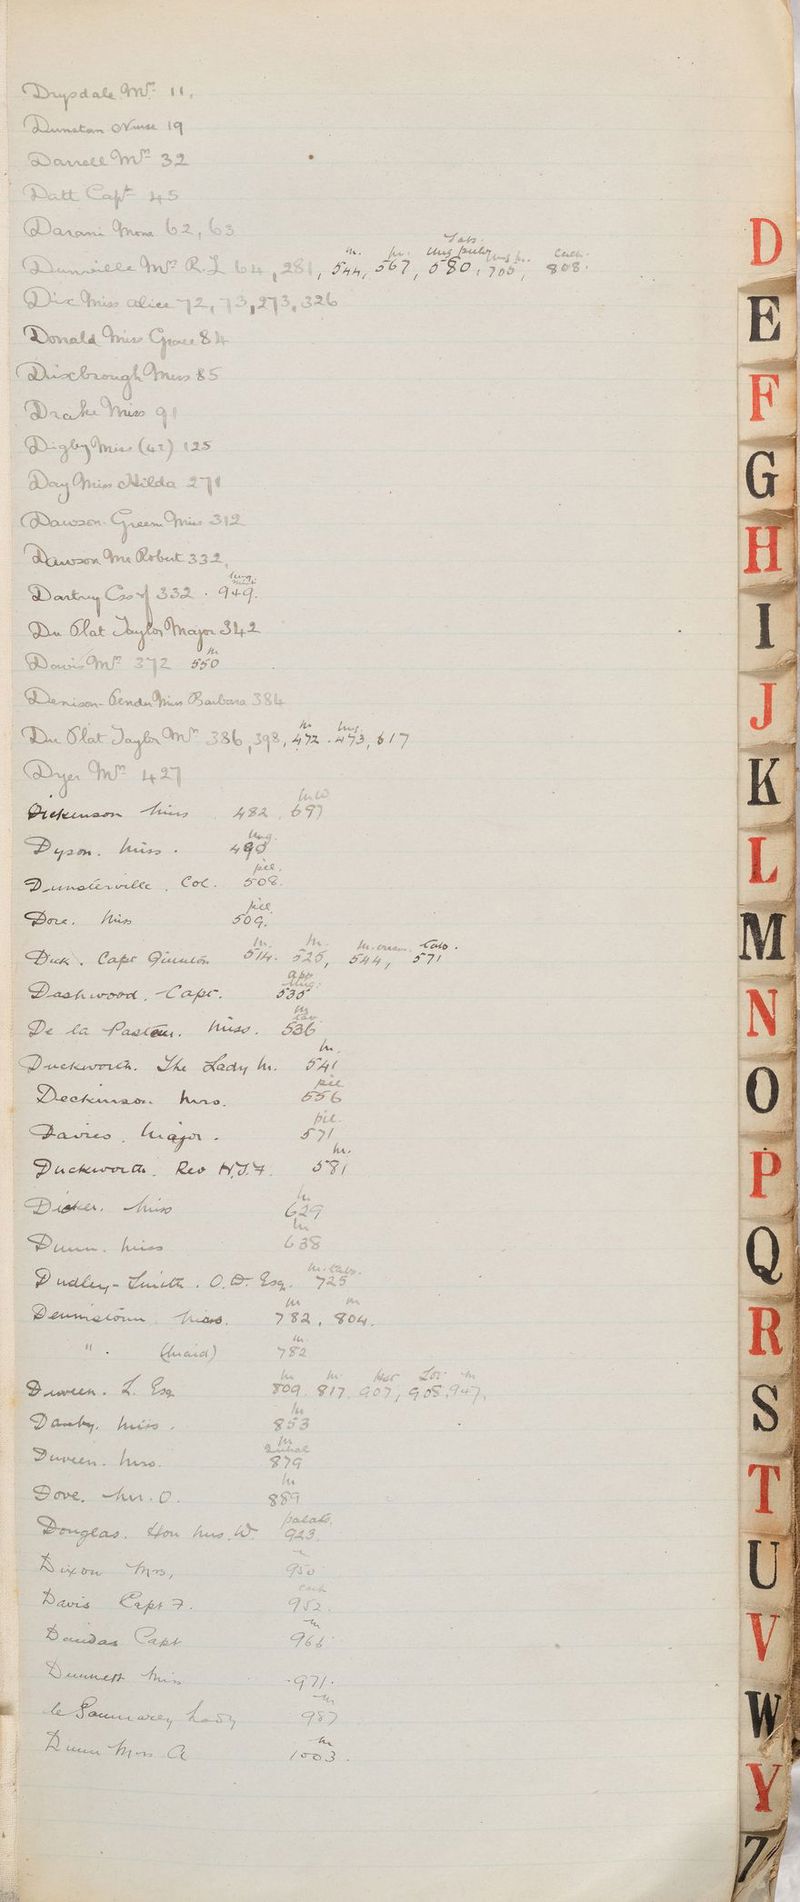 Drysdale Mrs 11.
Dunstan Nurse 19
Darrell Mrs 32
Datt Capt 45
Darani Mme 62, 63
Tabs.
m. m. Ung m. cach.
Dunville Mrs R.L 64, 281, 544, 567, 580, 705, 808.
Dix Miss Alice 72, 73, 273, 326
Donald Miss Grace 84
Drixbrough Mrs 85
Drake Miss 91
Digby Miss 125
Day Miss Hilda 271
Dawson-Green Miss 312
Dawson Mr Robert 332
ung
Dartrey Css of 332. 949.
Du Plat Taylor Major 342
m
Davis Mrs 372 550
Denison-Pender Miss Barbara 384
m ung
Du Plat Taylor Mrs 386, 398, 472. 473, 617
Dyer Mrs 427
Dickinson Miss 482. 697
ung.
Dyson. Miss. 490
pil.
Dunsterville. Col. 508.
pil
Dore. Miss 509.
m. m. m. cream.
Dick. Capt Quinton 514. 525, 544, 571
ung.
Dashwood. Capt. 535
m
De la Pasture. Miss. 536
m.
Duckworth. The Lady M. 541
pil
Deckinson Mrs. 556
pil.
Davies. Major. 571
m.
Duckworth. Rev H.J.F. 581
m
Dicker. Miss 629
m
Dunn. Miss 638
m. tabs.
Dudley-Smith. O.D. Esq. 725
m m
Dennistoun 782, 804.
m
" . (Maid) 782
m m Lot m
Duveen. L. Esq 809. 817. 907, 908, 947,
m
Danby. Miss. 853
m
Duveen. Mrs. 879
m
Dove. Mr. O. 889
palats.
Douglas. Hon Mrs. W. 923.
m
Dixon Mrs, 950
cach
Davis Capt F. 952.
m
Dundas Capt 966
Dunnett Miss 971.
m
de Saumarez Lady 987
m
Dunn Mrs A 1003.
D
E
F
G
H
I
J
K
L
M
N
O
P
Q
R
S
T
U
V
W
Y
Z